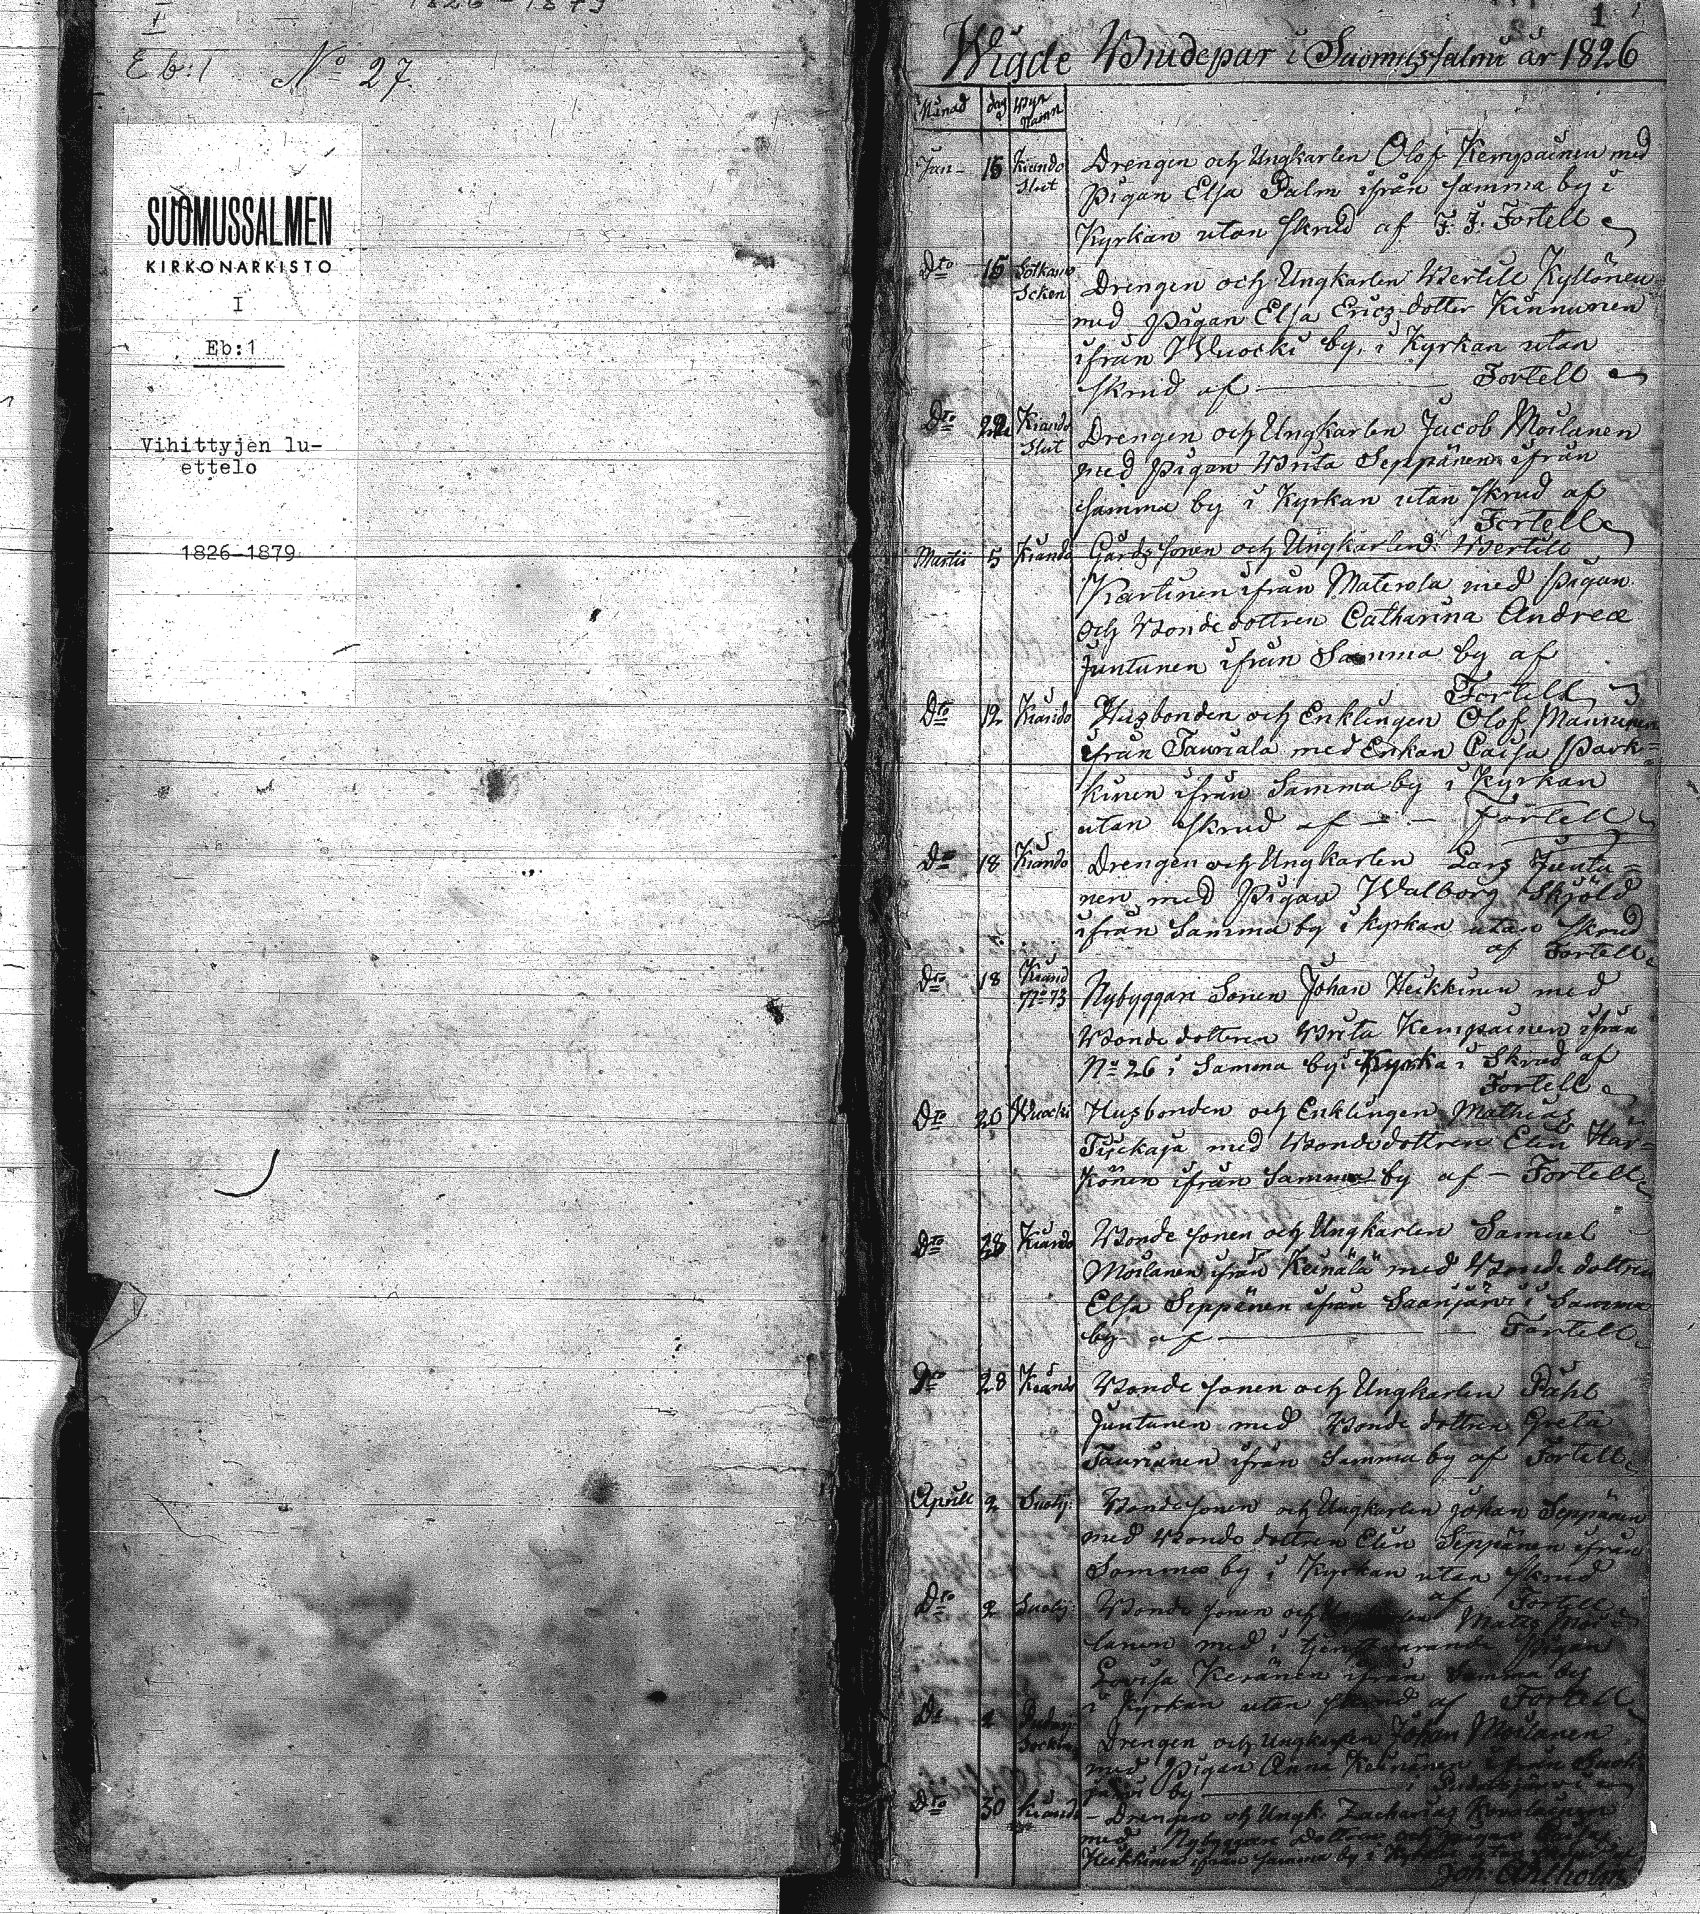 1826-1879
I
Eb:1 No 27.
SUOMUSSALMEN
KIRKONARKISTO
I
Eb:1
Vihittyjen lu-
ettelo
1826-1879
1
Wigde Brudepar i Suomussalmi år 1826
Månad dag Byn Namn
Jan- 15 Kiando Slut Drengen och Ungkarlen Olof Kempainen med
Pigan Elsa Palm ifrån samma by i
Kyrkan utan skrud af F. J. Fortell
Dto 15 Sotkamo Socken Drengen och Ungkarlen Bertill Kyllönen
med Pigan Elsa Ericz dotter Kinnunen
ifrån Wuocki by, i Kyrkan utan
skrud af Fortell
Dto 22 Kiando Slut Drengen och Ungkarlen Jacob Moilanen
med Pigan Brita Seppänen ifrån
samma by i Kyrkan utan skrud af
Fortell
Martii 5 Kiando Gårdz sonen och Ungkarlen Bertill
Kartinen ifrån Materola med Pigan
och Bonde dottren Catharina Andreæ
Juntunen ifrån Samma by af
Fortell
Dto 12 Kiando Husbonden och Enklingen Olof Manninen
ifrån Tauriala med Enkan Caisa Park=
kinen ifrån Samma by i Kyrkan
utan skrud af - - Fortell
Dto 18 Kiando Drengen och Ungkarlen Lars Juntu=
nen med Pigan Walborg Skjöld
ifrån Samma by i kyrkan utan skrud
af Fortell
Dto 18 Kiand No 73 Nybyggari Sonen Johan Heikkinen med
Bonde dottren Brita Kempainen ifrån
No 26 i Samma by i Kyrka i Skrud af
Fortell
Dto 20 Wuocki Husbonden och Enklingen Mathias
med Bondedottren Elin Här=
könen ifrån Samma by af - Fortell
Dto 28 Kiando Bonde sonen och Ungkarlen Samuel
Moilanen ifrån Keinälä med Bonde dottren
Elsa Seppänen ifrån Saanjärvi i Samma
by af Fortell
Dto 28 Kiando Bonde sonen och Ungkarlen Påhl
Juntunen med Bonde dottren Greta
Taurianen ifrån Samma by af Fortell
Aprill 2 Bonde sonen och Ungkarlen Johan Seppänen
med Bonde dottren Elin Seppänen ifrån
Samma by i Kyrkan utan skrud
af Fortell
Dto 2 Bonde sonen och Ungkarlen Matts Moi=
lanen med i tjenst varande Pigan
Lovisa Keränen ifrån Samma by
i Kyrkan utan skrud af Fortell
Dto 2 Drengen och Ungkarlen Johan Moilanen
med Pigan Anna Keinänen ifrån
by i
Dto 30 Kiando Drengen och Ungk. Zacharias
med Nybyggare dottren och pigan
Heikkinen ifrån samma by i Kyrkan utan
Joh. Ahlholm